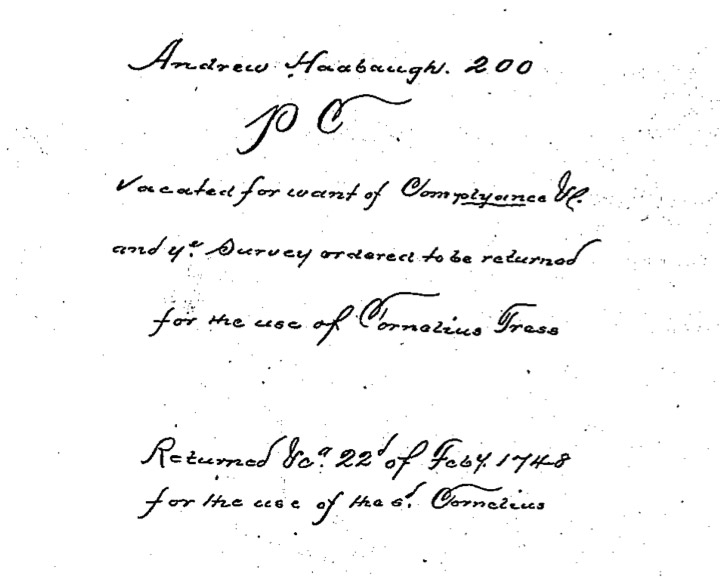 Andrew Haabaugh. 200
P C
Vacated for want of Complyance &c.
and yᵉ. Survey ordered to be returned
for the use of Cornelius Tress
Returned &cᵃ. 22ᵈ of Feby. 1748
for the use of the sᵈ. Cornelius